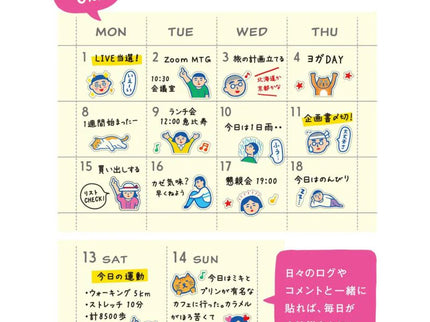 MON
TUE
WED
THU
1
LIVE当選!
2
Zoom MTG
10:30
会議室
3
旅の計画立てる
北海道か
京都かな
4
ヨガDAY
8
1週間始まったー
9
ランチ会
12:00 恵比寿
10
今日は1日雨・・
11
企画書〆切!
15
買い出しする
リスト
CHECK!
16
カゼ気味?
早くねよう
17
懇親会 19:00
18
今日はのんびり
13 SAT
今日の運動
・ウォーキング 5km
・ストレッチ 10分
・計8500歩
14 SUN
今日はミキと
プリンが有名な
カフェに行った。カラメル
がほろ苦くて
日々のログや
コメントと一緒に
貼れば、毎日が